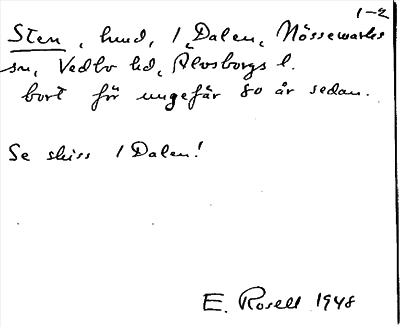 1-2
Sten, hmd, 1 Dalen, Nössemarks
sn, Vedbo hd, Älvsborgs l.
bort för ungefär 80 år sedan.
Se skiss 1 Dalen!
E. Rosell 1948